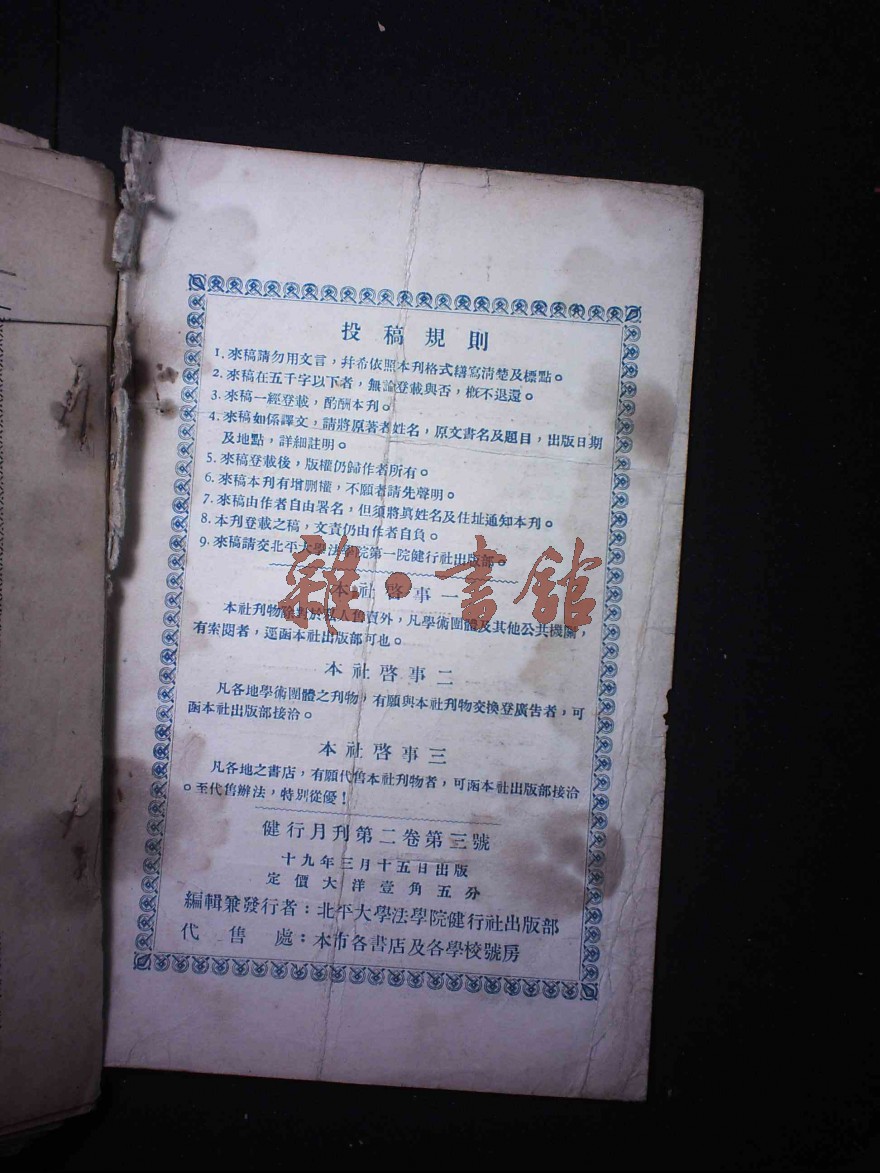 投稿規則
1. 來稿請勿用文言，幷希依照本刊格式繕寫淸楚及標點。
2. 來稿在五千字以下者，無論登載與否，概不退還。
3. 來稿一經登載，酌酬本刊。
4. 來稿如係譯文，請將原著者姓名，原文書名及題目，出版日期
及地點，詳細註明。
5. 來稿登載後，版權仍歸作者所有。
6. 來稿本刊有增删權，不願者請先聲明。
7. 來稿由作者自由署名，但須將眞姓名及住址通知本刊。
8. 本刊登載之稿，文責仍由作者自負。
9. 來稿請交北平大學法學院第一院健行社出版部。
雜·書館
本社啓事一
本社刊物除對於私人售賣外，凡學術團體及其他公共機關，
有索閱者，逕函本社出版部可也。
本社啓事二
凡各地學術團體之刊物，有願與本社刊物交換登廣告者，可
函本社出版部接洽。
本社啓事三
凡各地之書店，有願代售本社刊物者，可函本社出版部接洽
。至代售辦法，特別從優！
健行月刊第二卷第三號
十九年三月十五日出版
定價大洋壹角五分
編輯兼發行者：北平大學法學院健行社出版部
代售處：本市各書店及各學校號房